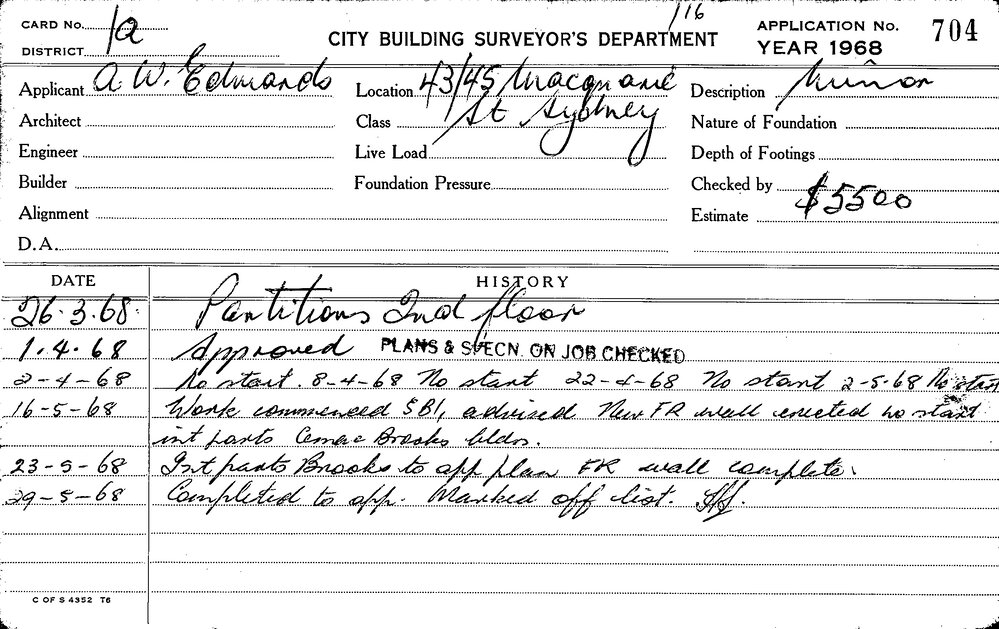 116
CARD No. 1a
CITY BUILDING SURVEYOR'S DEPARTMENT
APPLICATION No. 704
YEAR 1968
DISTRICT
Applicant A W. Edmunds
Location 43/45 Macquarie
St Sydney
Description Minor
Architect
Class
Nature of Foundation
Engineer
Live Load
Depth of Footings
Builder
Foundation Pressure
Checked by
Alignment
Estimate $5500
D.A.
DATE HISTORY
26.3.68. Partitions 2nd floor
1.4.68 Approved PLANS & SPECN. ON JOB CHECKED
2-4-68 No start. 8-4-68 No start 22-4-68 No start 2-5-68 No start
16-5-68 Work commenced SBI, advised New FR wall erected no start
int parts Brooks bldrs.
23-5-68 Int parts Brooks to app plan FR wall complete.
29-5-68 Completed to app. Marked off list.
C OF S 4352 T6